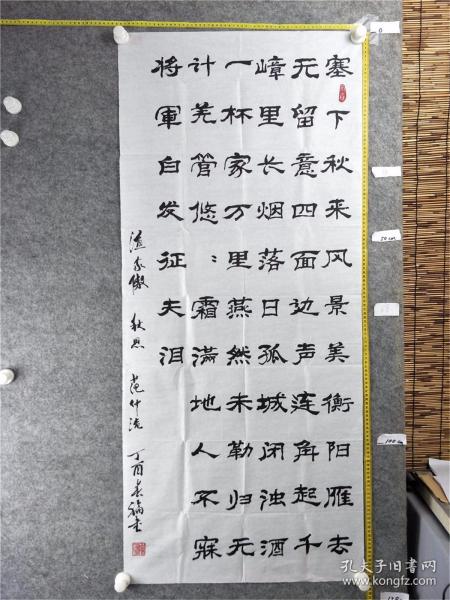 塞下秋来风景美衡阳雁去
无留意四面边声连角起千
嶂里长烟落日孤城闭浊酒
一杯家万里燕然未勒归无
计羌管悠:霜满地人不寐
将军白发征夫泪
渔家傲 秋思 范仲淹 丁酉春福书
0
50cm
100cm
孔夫子旧书网
kongfz.com